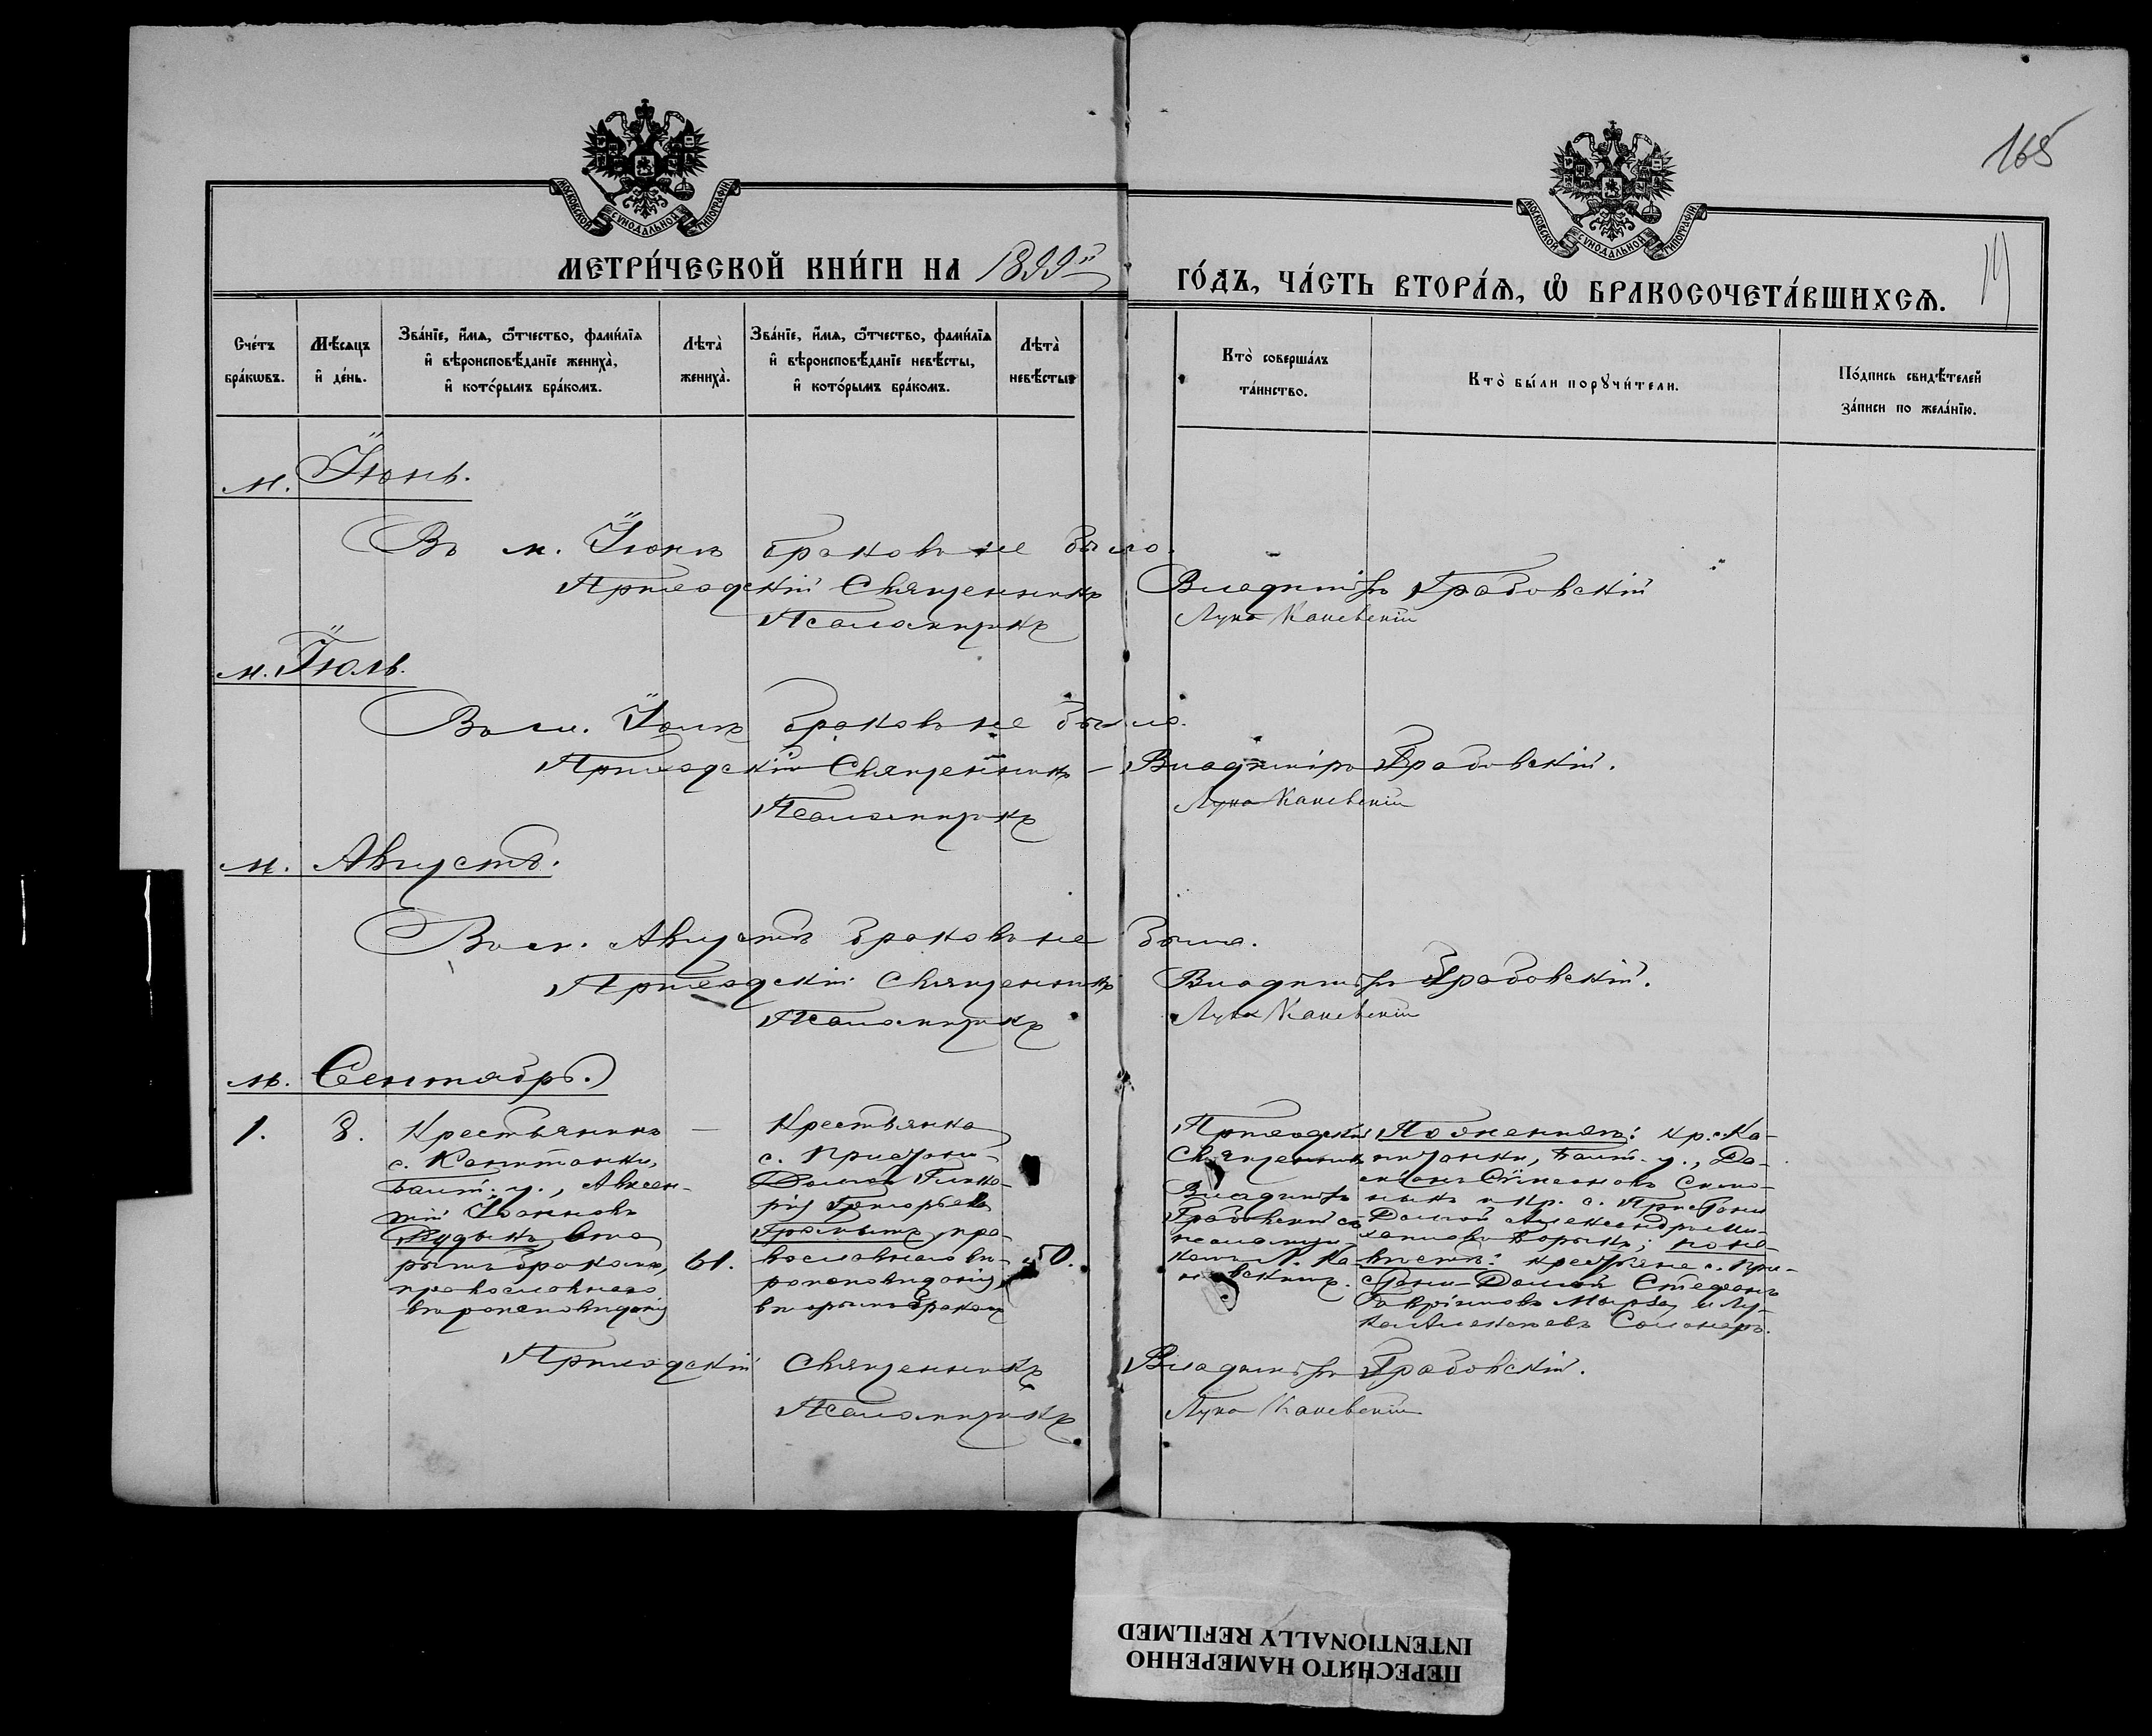 165
МОСКОВСКОЙ СѴНОДАЛЬНОЙ ТИПОГРАФІИ
МОСКОВСКОЙ СѴНОДАЛЬНОЙ ТИПОГРАФІИ
МЕТРИ́ЧЕСКОЙ КНИ́ГИ НА 1899й
ГО́ДЪ, ЧА́СТЬ ВТОРА́Ѧ, Ѽ БРАКОСОЧЕТА́ВШИХСѦ.
19
Сче́тъ бра́кѡвъ.
Мѣ́сѧцъ и҆ де́нь.
Зва́нїе, и҆́мѧ, ѻ҆́тчество, фами́лїѧ и҆ вѣроисповѣ́данїе жениха̀, и҆ кото́рымъ бра́комъ.
Лѣта̀ жениха̀.
Зва́нїе, и҆́мѧ, ѻ҆́тчество, фами́лїѧ и҆ вѣроисповѣ́данїе невѣ́сты, и҆ кото́рымъ бра́комъ.
Лѣта̀ невѣ́сты.
Кто̀ соверша́лъ та́инство.
Кто̀ бы́ли порꙋчи́тели.
По́дпись свидѣ́телей за́писи по жела́нїю.
м. Іюнь.
Въ м. Іюнѣ браковъ не было.
Приходскій Священникъ Владиміръ Грабовскій
Псаломщикъ Лука Каневскій
м. Іюль.
Въ м. Іюлѣ браковъ не было.
Приходскій Священникъ – Владиміръ Грабовскій.
Псаломщикъ Лука Каневскій
м. Августъ.
Въ м. Августѣ браковъ не было.
Приходскій Священникъ Владиміръ Грабовскій.
Псаломщикъ Лука Каневскій
м. Сентябрь.
1. 8.
Крестьянинъ
с. Капитанки,
Балт. у., Авксен-
тій Іоанновъ
вто
рымъ бракомъ,
православнаго
вѣроисповѣданія
61.
Крестьянка
с.
Григорьева
пра-
вославнаго вѣ-
роисповѣданія,
вторымъ бракомъ
50.
Приходскій
Священникъ
Владиміръ
Грабовскій съ
псаломщи-
комъ Л. Ка-
невскимъ.
По женихѣ: кр. с. Ка-
питанки, Балт. у., Да-
міанъ Симеоновъ
и кр. с.
Александръ Ми-
хаиловъ ; по не-
вѣстѣ: крестьяне с. При-
Стефанъ
Гавріиловъ и Лу-
ка Алексѣевъ
Приходскій Священникъ Владиміръ Грабовскій.
Псаломщикъ Лука Каневскій
ПЕРЕСНЯТО НАМЕРЕННО
INTENTIONALLY REFILMED